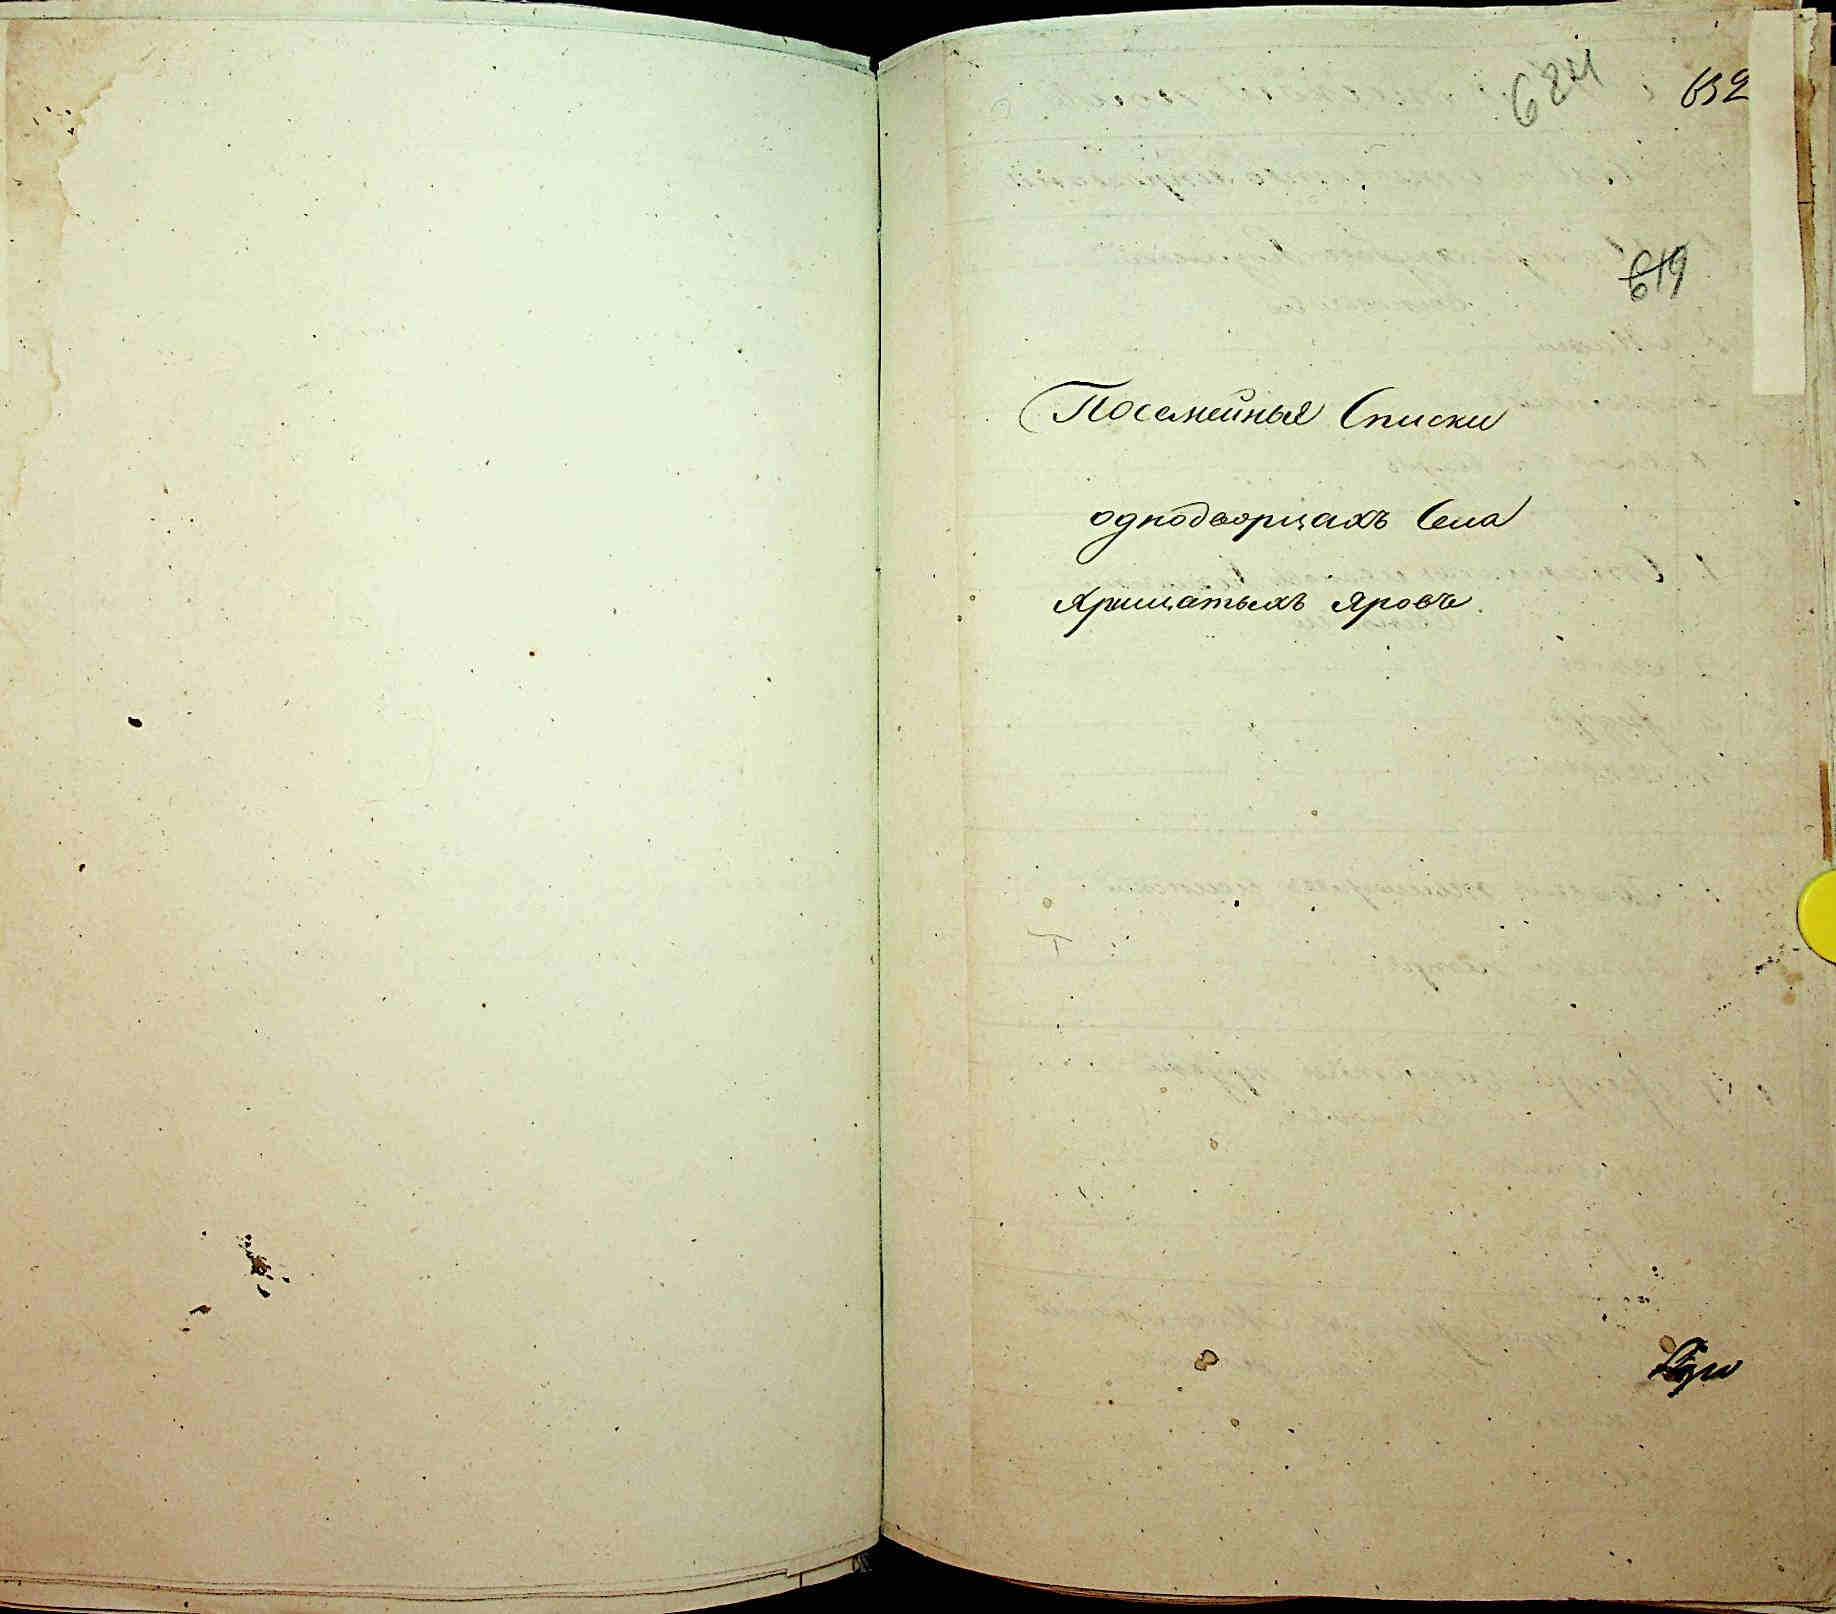 684
632
619
Посемейные Списки
однодворцахъ Села
Хрищатыхъ Яровъ